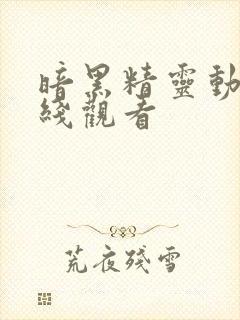 暗黑精靈動
綫觀者
荒夜殘雪